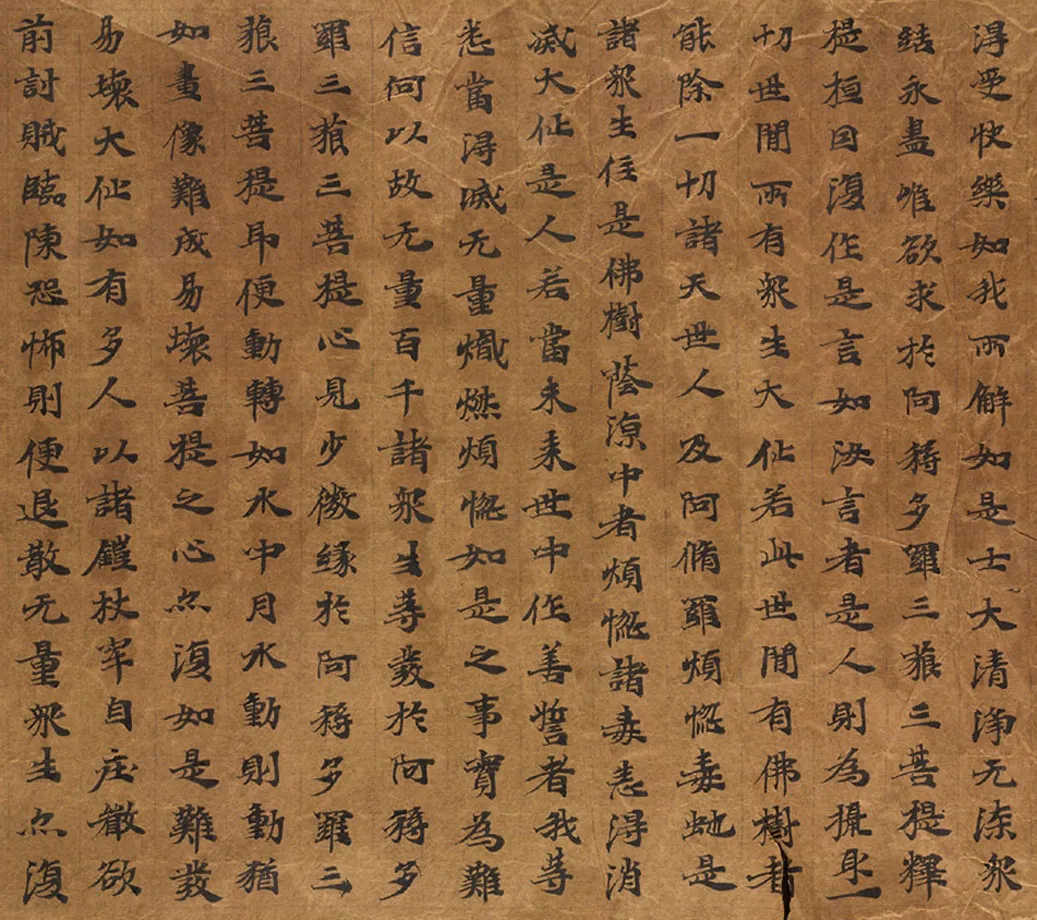 得受快樂如我所解如是士大清淨无染衆
結永盡惟欲求於阿耨多羅三藐三菩提釋
提桓因復作是言如汝言者是人則為攝取一
切世間所有衆生大仙若此世間有佛樹者
能除一切諸天世人及阿脩羅煩惱毒虵是
諸衆生住是佛樹蔭涼中者煩惱諸毒悉得消
滅大仙是人若當未來世中作善誓者我等
悉當得滅无量熾燃煩惱如是之事實為難
信何以故无量百千諸衆生等發於阿耨多
羅三藐三菩提心見少微緣於阿耨多羅三
藐三菩提即便動轉如水中月水動則動猶
如畫像難成易壞菩提之心亦復如是難發
易壞大仙如有多人以諸鎧杖牢自庄嚴欲
前討賊臨陳恐怖則便退散无量衆生亦復